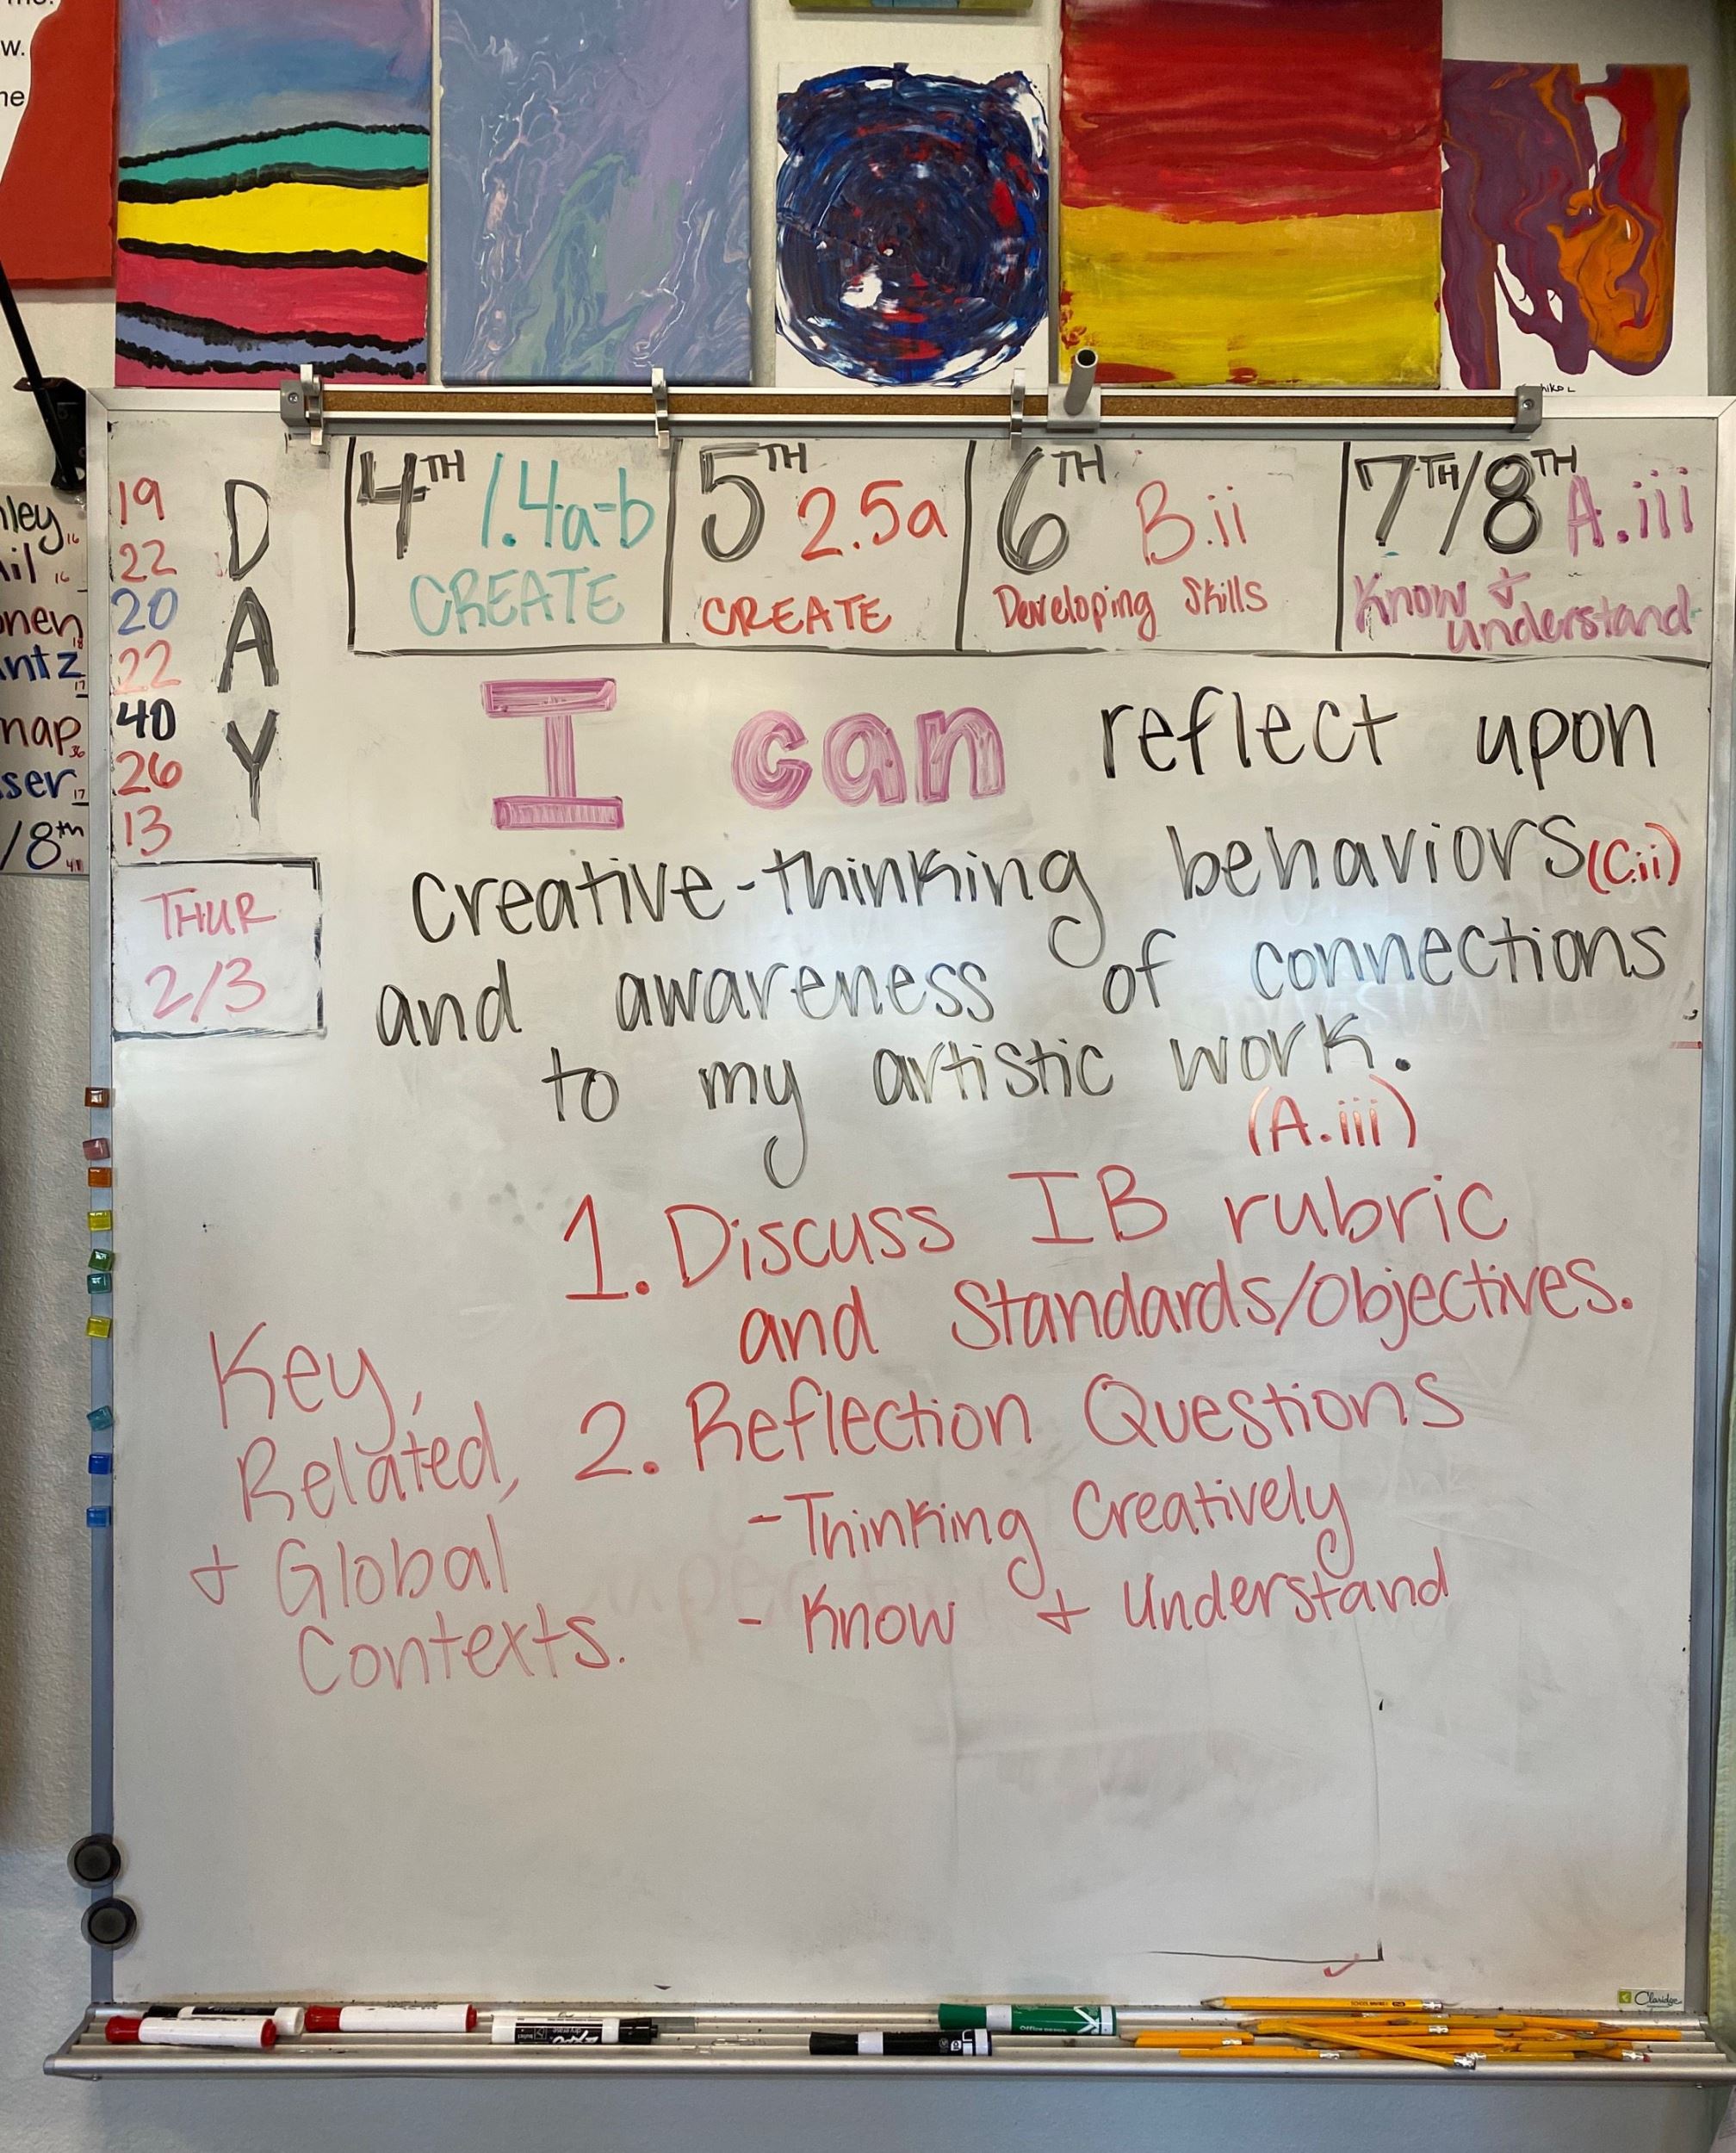 me.
w.
me
hiko L
4TH 1.4a-b
CREATE
5TH 2.5a
CREATE
6TH B.ii
Developing Skills
7TH/8TH A.iii
Know + understand
DAY
19
22
20
22
40
26
13
nley 16
ail 16
onen 18
ntz 17
nap 36
ser 17
/8th 41
THUR
2/3
I can reflect upon
creative-thinking behaviors (C.ii)
and awareness of connections
to my artistic work.
(A.iii)
1. Discuss IB rubric
and Standards/Objectives.
2. Reflection Questions
- Thinking Creatively
- Know + Understand
Key,
Related,
+ Global
Contexts.
Claridge
EXPO